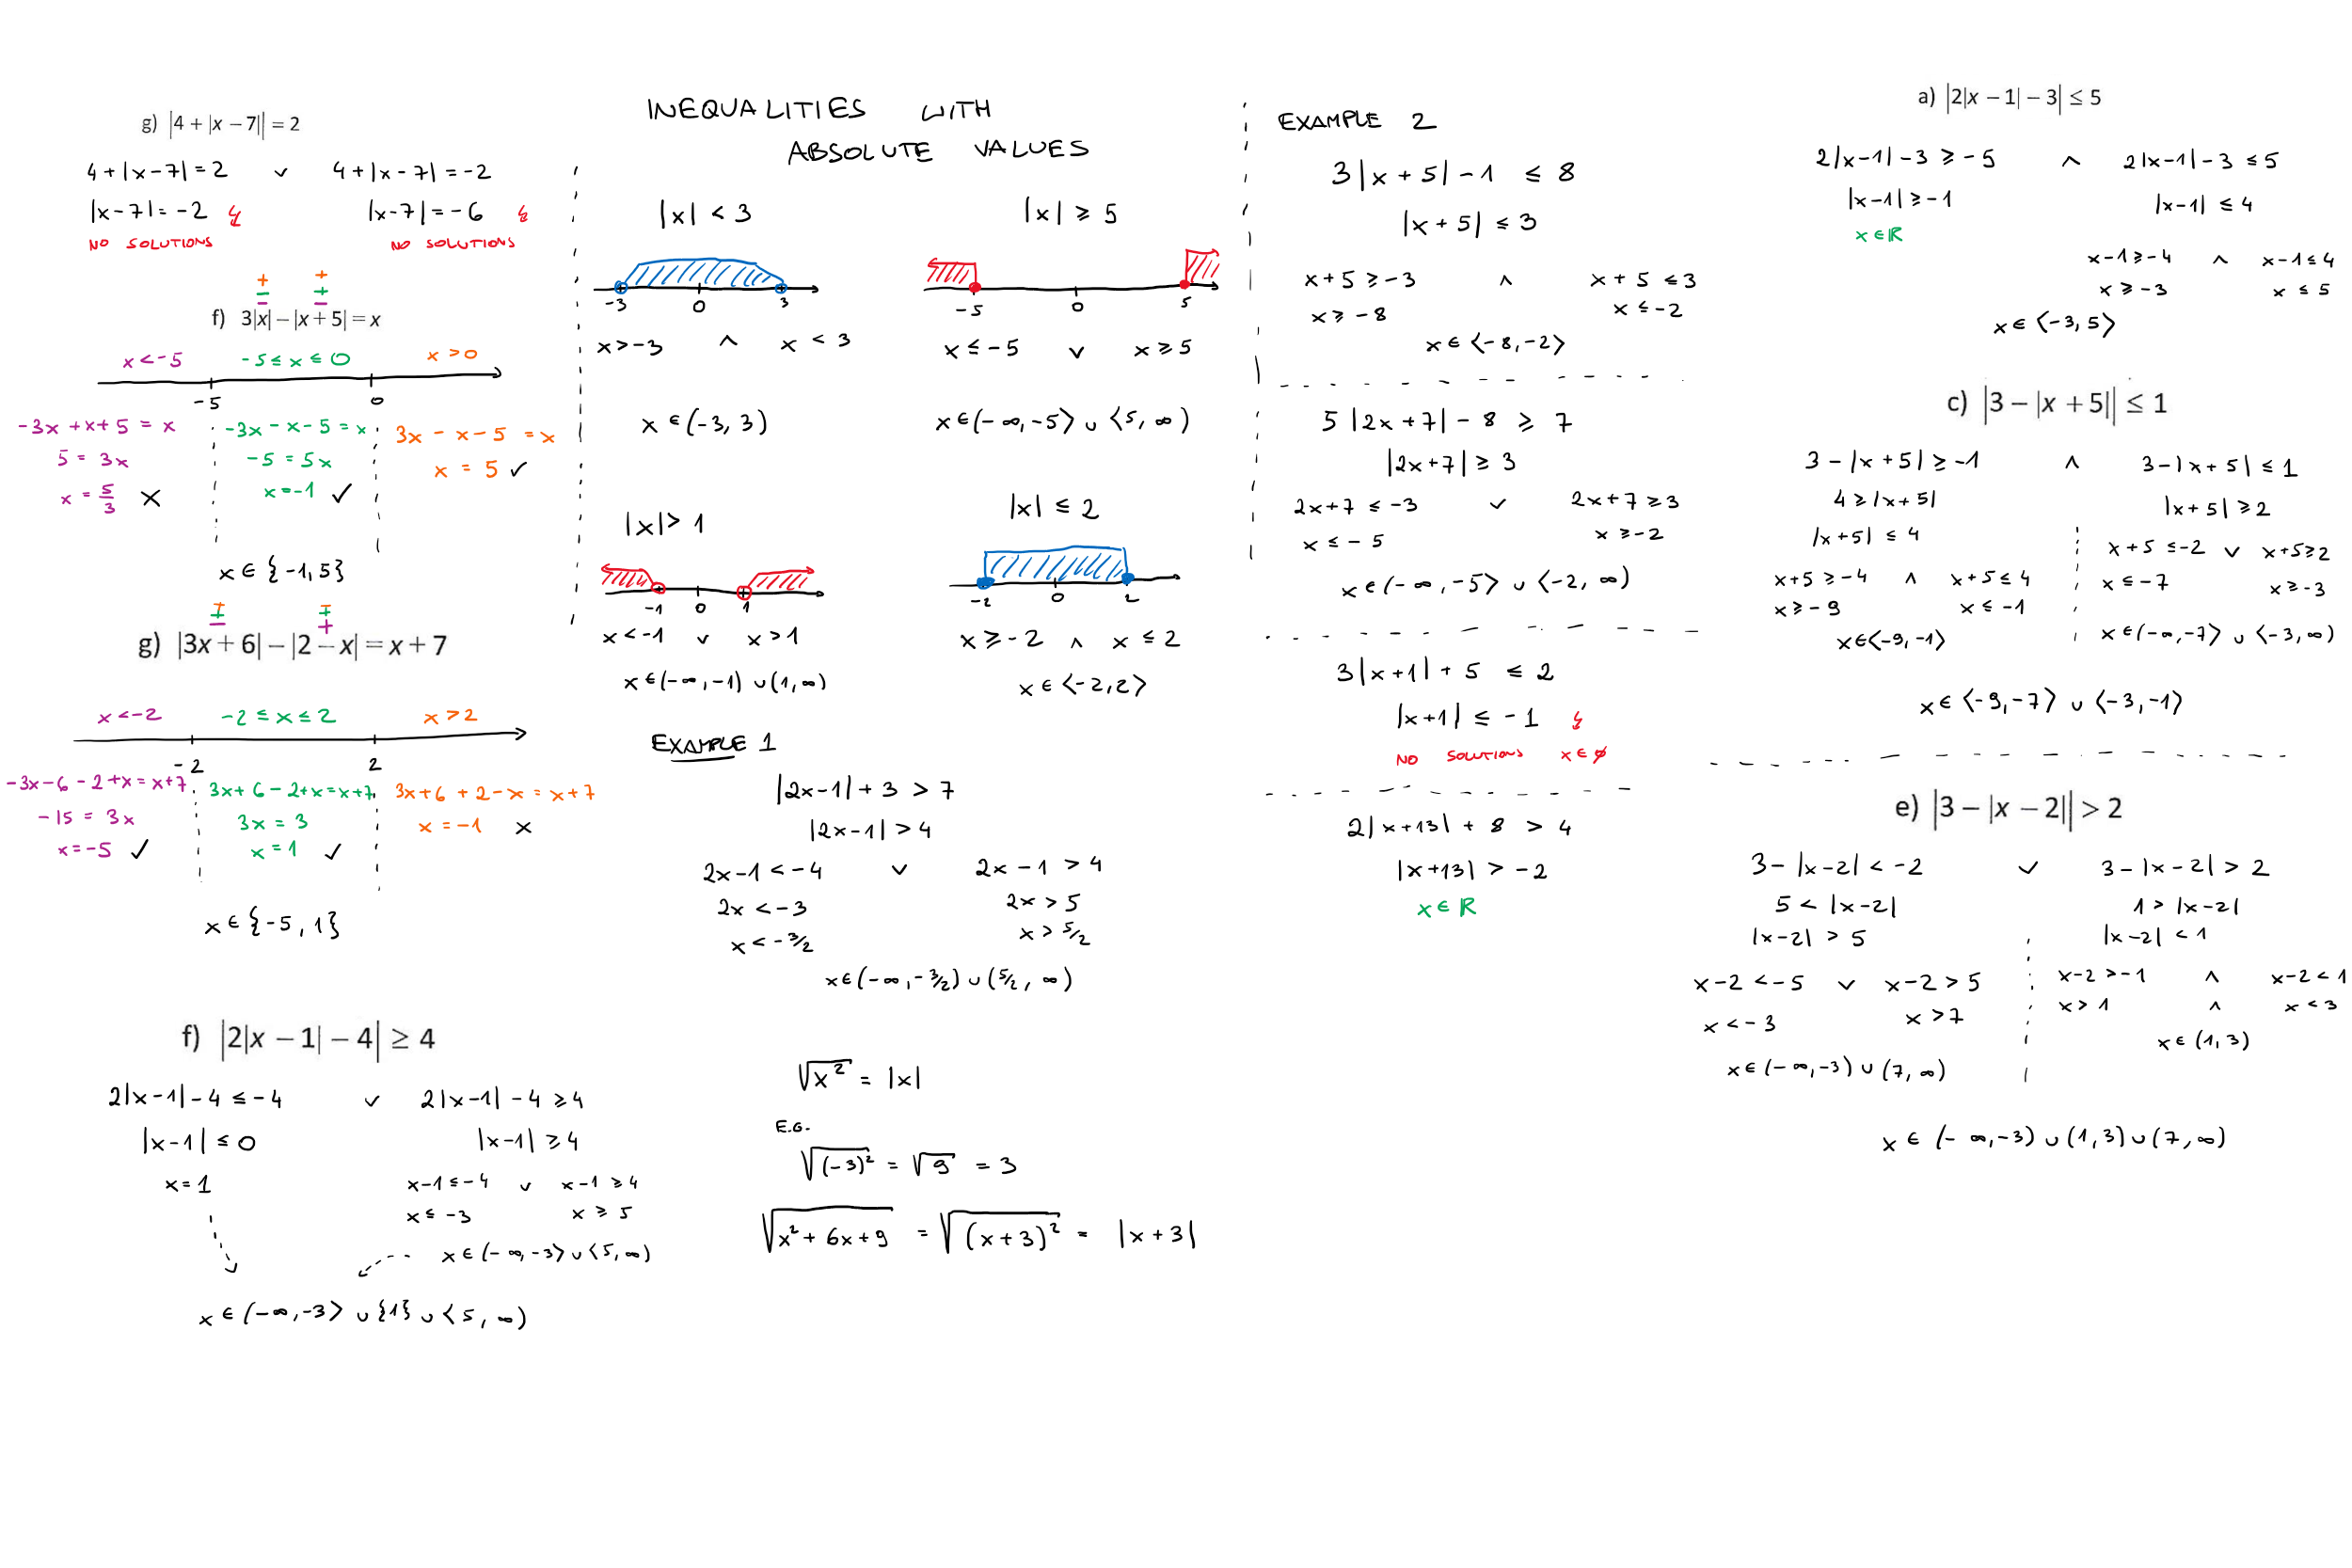 g) |4 + |x − 7|| = 2
4 + |x − 7| = 2 ∨ 4 + |x − 7| = −2
|x − 7| = −2 ↯ |x − 7| = −6 ↯
NO SOLUTIONS NO SOLUTIONS
+ +
− +
− −
f) 3|x| − |x + 5| = x
x < −5 −5 ≤ x ≤ 0 x > 0
−5 0
−3x + x + 5 = x −3x − x − 5 = x 3x − x − 5 = x
5 = 3x −5 = 5x x = 5 ✓
x = 5/3 ✗ x = −1 ✓
x ∈ {−1, 5}
+ −
+ +
− +
g) |3x + 6| − |2 − x| = x + 7
x < −2 −2 ≤ x ≤ 2 x > 2
−2 2
−3x − 6 − 2 + x = x + 7 3x + 6 − 2 + x = x + 7 3x + 6 + 2 − x = x + 7
−15 = 3x 3x = 3 x = −1 ✗
x = −5 ✓ x = 1 ✓
x ∈ {−5, 1}
f) |2|x − 1| − 4| ≥ 4
2|x − 1| − 4 ≤ −4 ∨ 2|x − 1| − 4 ≥ 4
|x − 1| ≤ 0 |x − 1| ≥ 4
x = 1 x − 1 ≤ −4 ∨ x − 1 ≥ 4
x ≤ −3 x ≥ 5
x ∈ (−∞, −3⟩ ∪ ⟨5, ∞)
x ∈ (−∞, −3⟩ ∪ {1} ∪ ⟨5, ∞)
INEQUALITIES WITH
ABSOLUTE VALUES
|x| < 3 |x| ≥ 5
−3 0 3 −5 0 5
x > −3 ∧ x < 3 x ≤ −5 ∨ x ≥ 5
x ∈ (−3, 3) x ∈ (−∞, −5⟩ ∪ ⟨5, ∞)
|x| > 1 |x| ≤ 2
−1 0 1 −2 0 2
x < −1 ∨ x > 1 x ≥ −2 ∧ x ≤ 2
x ∈ (−∞, −1) ∪ (1, ∞) x ∈ ⟨−2, 2⟩
EXAMPLE 1
|2x − 1| + 3 > 7
|2x − 1| > 4
2x − 1 < −4 ∨ 2x − 1 > 4
2x < −3 2x > 5
x < −3/2 x > 5/2
x ∈ (−∞, −3/2) ∪ (5/2, ∞)
√x² = |x|
E.G.
√(−3)² = √9 = 3
√x² + 6x + 9 = √(x + 3)² = |x + 3|
EXAMPLE 2
3|x + 5| − 1 ≤ 8
|x + 5| ≤ 3
x + 5 ≥ −3 ∧ x + 5 ≤ 3
x ≥ −8 x ≤ −2
x ∈ ⟨−8, −2⟩
5|2x + 7| − 8 ≥ 7
|2x + 7| ≥ 3
2x + 7 ≤ −3 ∨ 2x + 7 ≥ 3
x ≤ −5 x ≥ −2
x ∈ (−∞, −5⟩ ∪ ⟨−2, ∞)
3|x + 1| + 5 ≤ 2
|x + 1| ≤ −1 ↯
NO SOLUTIONS x ∈ ∅
2|x + 13| + 8 > 4
|x + 13| > −2
x ∈ ℝ
a) |2|x − 1| − 3| ≤ 5
2|x − 1| − 3 ≥ −5 ∧ 2|x − 1| − 3 ≤ 5
|x − 1| ≥ −1 |x − 1| ≤ 4
x ∈ ℝ
x − 1 ≥ −4 ∧ x − 1 ≤ 4
x ≥ −3 x ≤ 5
x ∈ ⟨−3, 5⟩
c) |3 − |x + 5|| ≤ 1
3 − |x + 5| ≥ −1 ∧ 3 − |x + 5| ≤ 1
4 ≥ |x + 5| |x + 5| ≥ 2
|x + 5| ≤ 4 x + 5 ≤ −2 ∨ x + 5 ≥ 2
x + 5 ≥ −4 ∧ x + 5 ≤ 4 x ≤ −7 x ≥ −3
x ≥ −9 x ≤ −1
x ∈ ⟨−9, −1⟩ x ∈ (−∞, −7⟩ ∪ ⟨−3, ∞)
x ∈ ⟨−9, −7⟩ ∪ ⟨−3, −1⟩
e) |3 − |x − 2|| > 2
3 − |x − 2| < −2 ∨ 3 − |x − 2| > 2
5 < |x − 2| 1 > |x − 2|
|x − 2| > 5 |x − 2| < 1
x − 2 < −5 ∨ x − 2 > 5 x − 2 > −1 ∧ x − 2 < 1
x < −3 x > 7 x > 1 ∧ x < 3
x ∈ (−∞, −3) ∪ (7, ∞) x ∈ (1, 3)
x ∈ (−∞, −3) ∪ (1, 3) ∪ (7, ∞)